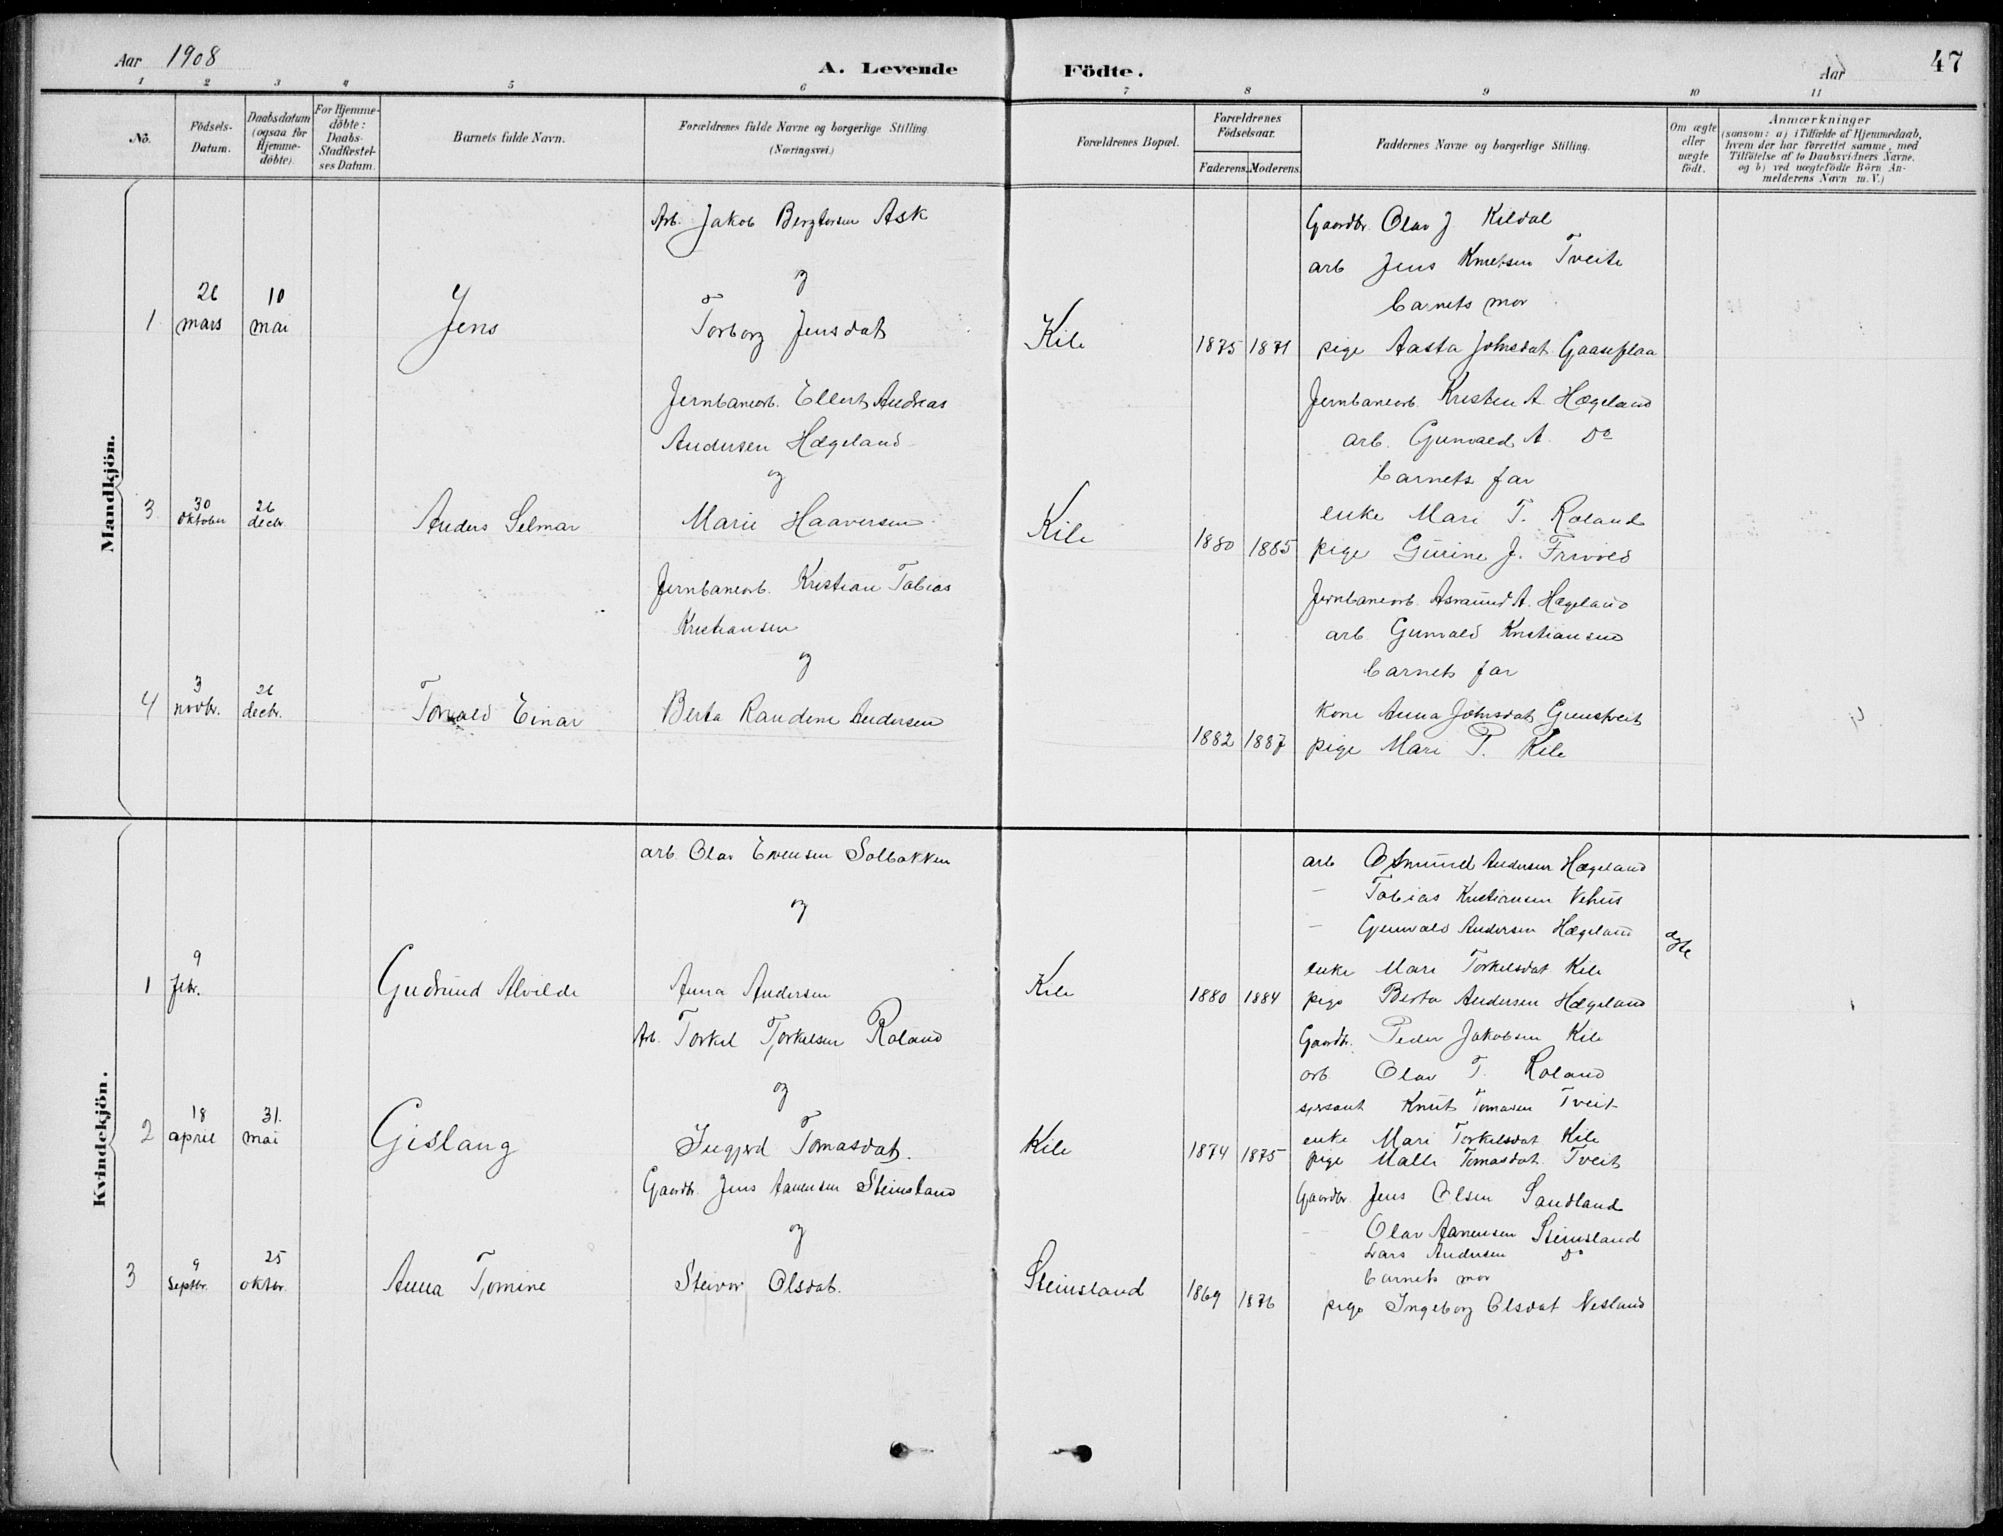 Aar 1908
A. Levende Födte.
Aar
47
1 2 3 4 5 6 7 8 9 10 11
No.
Födsels-Datum.
Daabsdatum (ogsaa för Hjemme-döbte).
For Hjemme-döbte: Daabs-Stadfæstel-ses Datum.
Barnets fulde Navn.
Forældrenes fulde Navne og borgerlige Stilling
(Næringsvei.)
Forældrenes Bopæl.
Forældrenes Födselsaar.
Faderens. Moderens.
Faddernes Navne og borgerlige Stilling.
Om ægte eller uægte födt.
Anmærkninger
(saasom: a) i Tilfælde af Hjemmedaab,
hvem der har forrettet samme, med
Tilföielse af to Daabsvidners Navne,
og b) ved uægtefödte Börn An-
melderens Navn m. V.)
Mandkjön.
1
26 mars
10 mai
Jens
Arb. Jakob Bergtorsen Ask
og
Torborg Jensdat
Kile
1875 1871
Gaardbr. Olav J Kildal
arb Jens Knutsen Tveite
barnets mor
pige Aasta Johnsdat Gaaseflaa
3
30 oktober
26 decbr.
Anders Selmar
Jernbanearb. Ellert Andreas
Andersen Hægeland
og
Marie Haaversen
Kile
1880 1885
Jernbanearb. Kristen A. Hægeland
arb. Gunvald A. Do
barnets far
enke Mari T. Roland
pige Gurine J. Frivold
4
3 novbr.
26 decbr.
Torvald Einar
Jernbanearb. Kristian Tobias
Kristiansen
og
Berta Randine Andersen
1882 1887
Jernbanearb. Asmund A. Hægeland
arb Gunvald Kristiansen
barnets far
Kone Anna Johnsdat
pige Mari T. Kile
Kvindekjön.
1
9 febr.
Gudrund Alvilde
arb. Olav Evensen Solbakken
og
Anna Andersen
Kile
1880 1884
arb Osmund Andersen Hægeland
– Tobias Kristiansen Vehus
– Gunvald Andersen Hægeland
enke Mari Torkelsdat Kile
pige Berta Andersen Hægeland
ægte
2
18 april
31. mai
Gislaug
Arb. Torkel Torkelsen Roland
og
Ingjerd Tomasdat.
Kile
1874 1875
Gaardbr. Peder Jakobsen Kile
arb Olav T. Roland
sersant Knut Tomasen Tveit
enke Mari Torkelsdat Kile
pige Malli Tomasdat Tveit
3
9 septbr.
25 oktbr.
Anna Tomine
Gaardbr. Jens Aanensen Steinsland
og
Steivor Olsdat.
Steinsland
1869 1876
Gaardbr Jens Olsen Sandland
– Olav Aanensen Steinsland
Lars Andersen Do
barnets mor
pige Ingeborg Olsdat Nesland